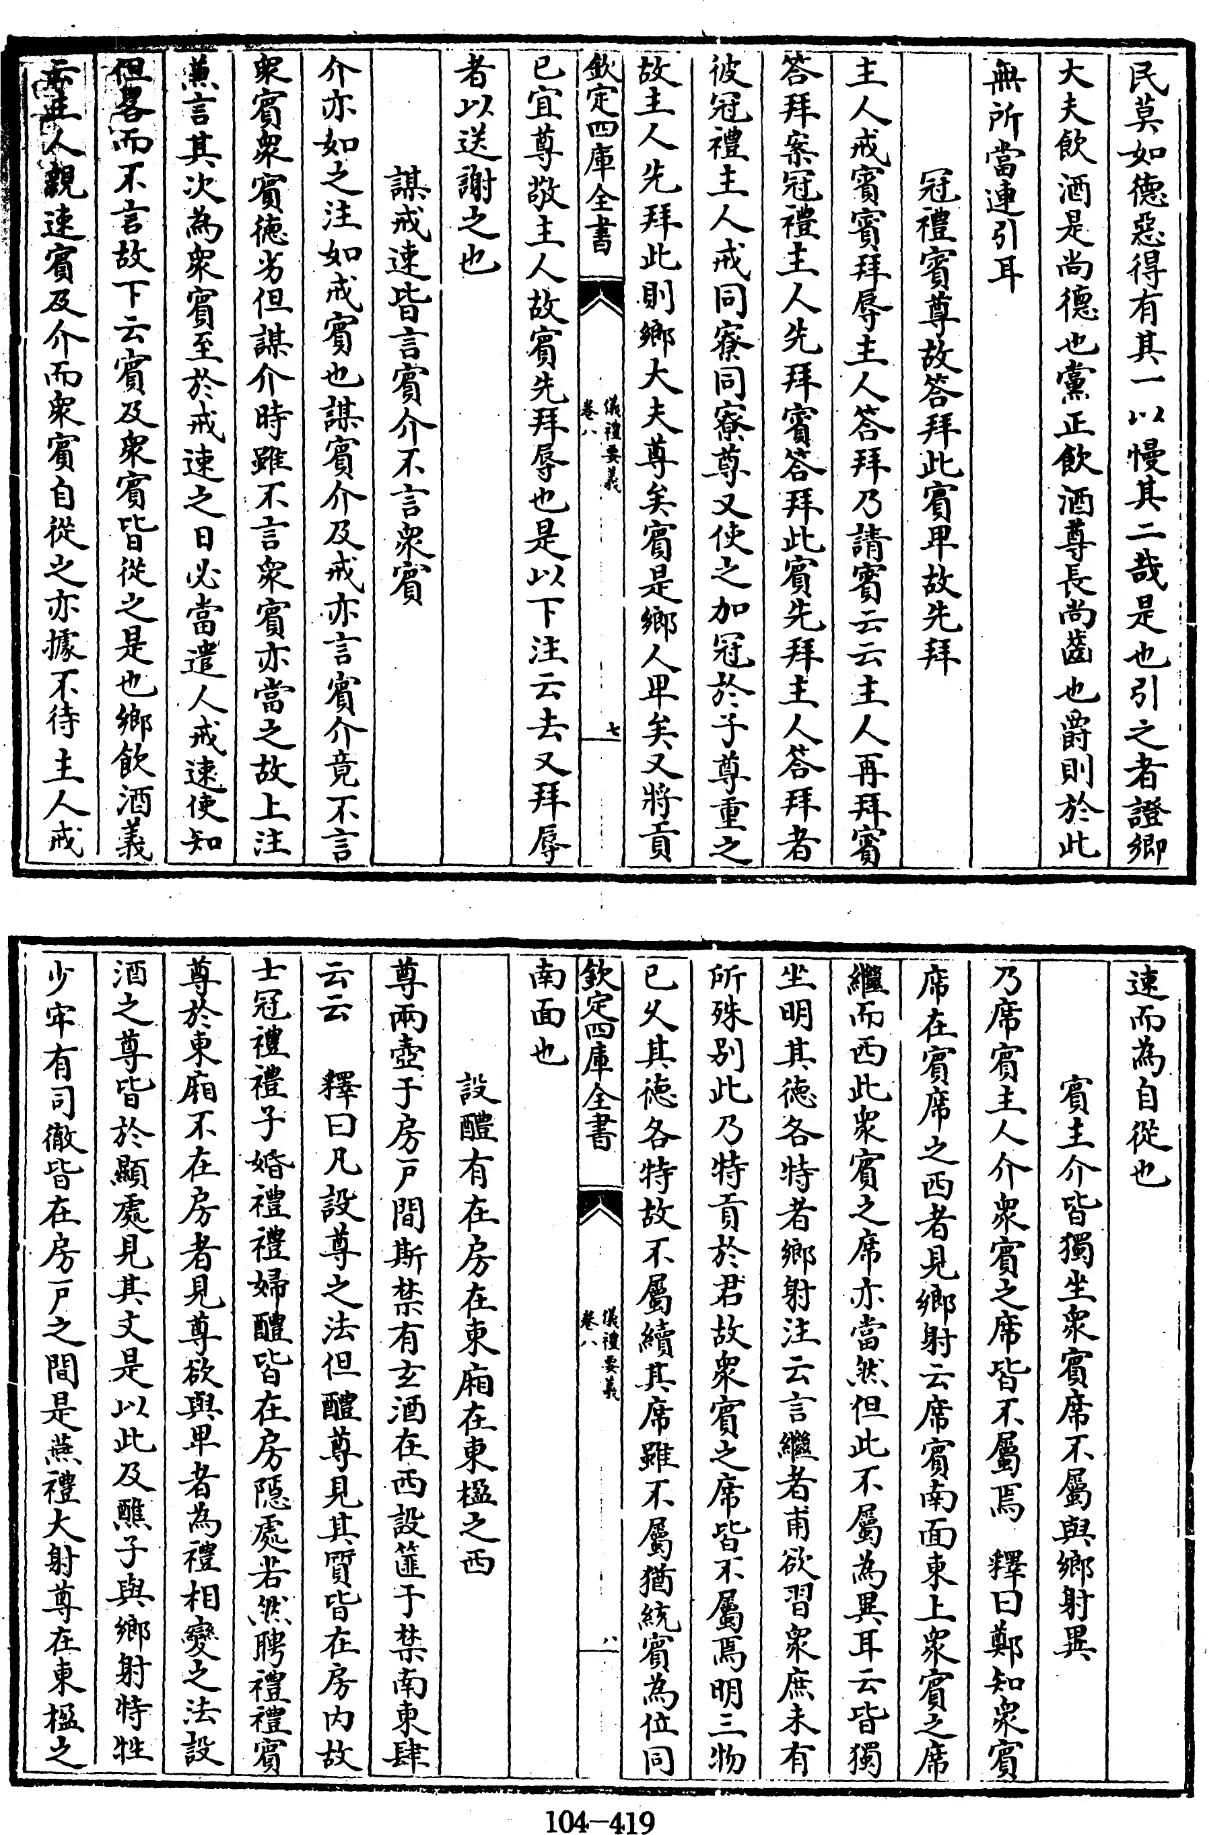 民莫如德惡得有其一以慢其二哉是也引之者證鄉
大夫飲酒是尚德也黨正飲酒尊長尚齒也爵則於此
無所當連引耳
冠禮賓尊故答拜此賓卑故先拜
主人戒賓賓拜辱主人答拜乃請賓云云主人再拜賓
答拜案冠禮主人先拜賓答拜此賓先拜主人答拜者
彼冠禮主人戒同寮同寮尊又使之加冠於子尊重之
故主人先拜此則鄉大夫尊矣賓是鄉人卑矣又將貢
欽定四庫全書 儀禮要義 卷八 七
已宜尊敬主人故賓先拜辱也是以下注云去又拜辱
者以送謝之也
謀戒速皆言賓介不言衆賓
介亦如之注如戒賓也謀賓介及戒亦言賓介竟不言
衆賓衆賓德劣但謀介時雖不言衆賓亦當之故上注
兼言其次為衆賓至於戒速之日必當遣人戒速使知
但畧而不言故下云賓及衆賓皆從之是也鄉飲酒義
云主人親速賓及介而衆賓自從之亦據不待主人戒
速而為自從也
賓主介皆獨坐衆賓席不屬與鄉射異
乃席賓主人介衆賓之席皆不屬焉 釋曰鄭知衆賓
席在賓席之西者見鄉射云席賓南面東上衆賓之席
繼而西此衆賓之席亦當然但此不屬為異耳云皆獨
坐明其德各特者鄉射注云言繼者甫欲習衆庶未有
所殊别此乃特貢於君故衆賓之席皆不屬焉明三物
已乆其德各特故不屬續其席雖不屬猶統賓為位同
欽定四庫全書 儀禮要義 卷八 八
南面也
設醴有在房在東廂在東楹之西
尊兩壺于房戶間斯禁有玄酒在西設篚于禁南東肆
云云 釋曰凡設尊之法但醴尊見其質皆在房内故
士冠禮禮子婚禮禮婦醴皆在房隱處若然聘禮禮賓
尊於東廂不在房者見尊欲與卑者為禮相變之法設
酒之尊皆於顯處見其文是以此及醮子與鄉射特牲
少牢有司徹皆在房戶之間是燕禮大射尊在東楹之
104-419